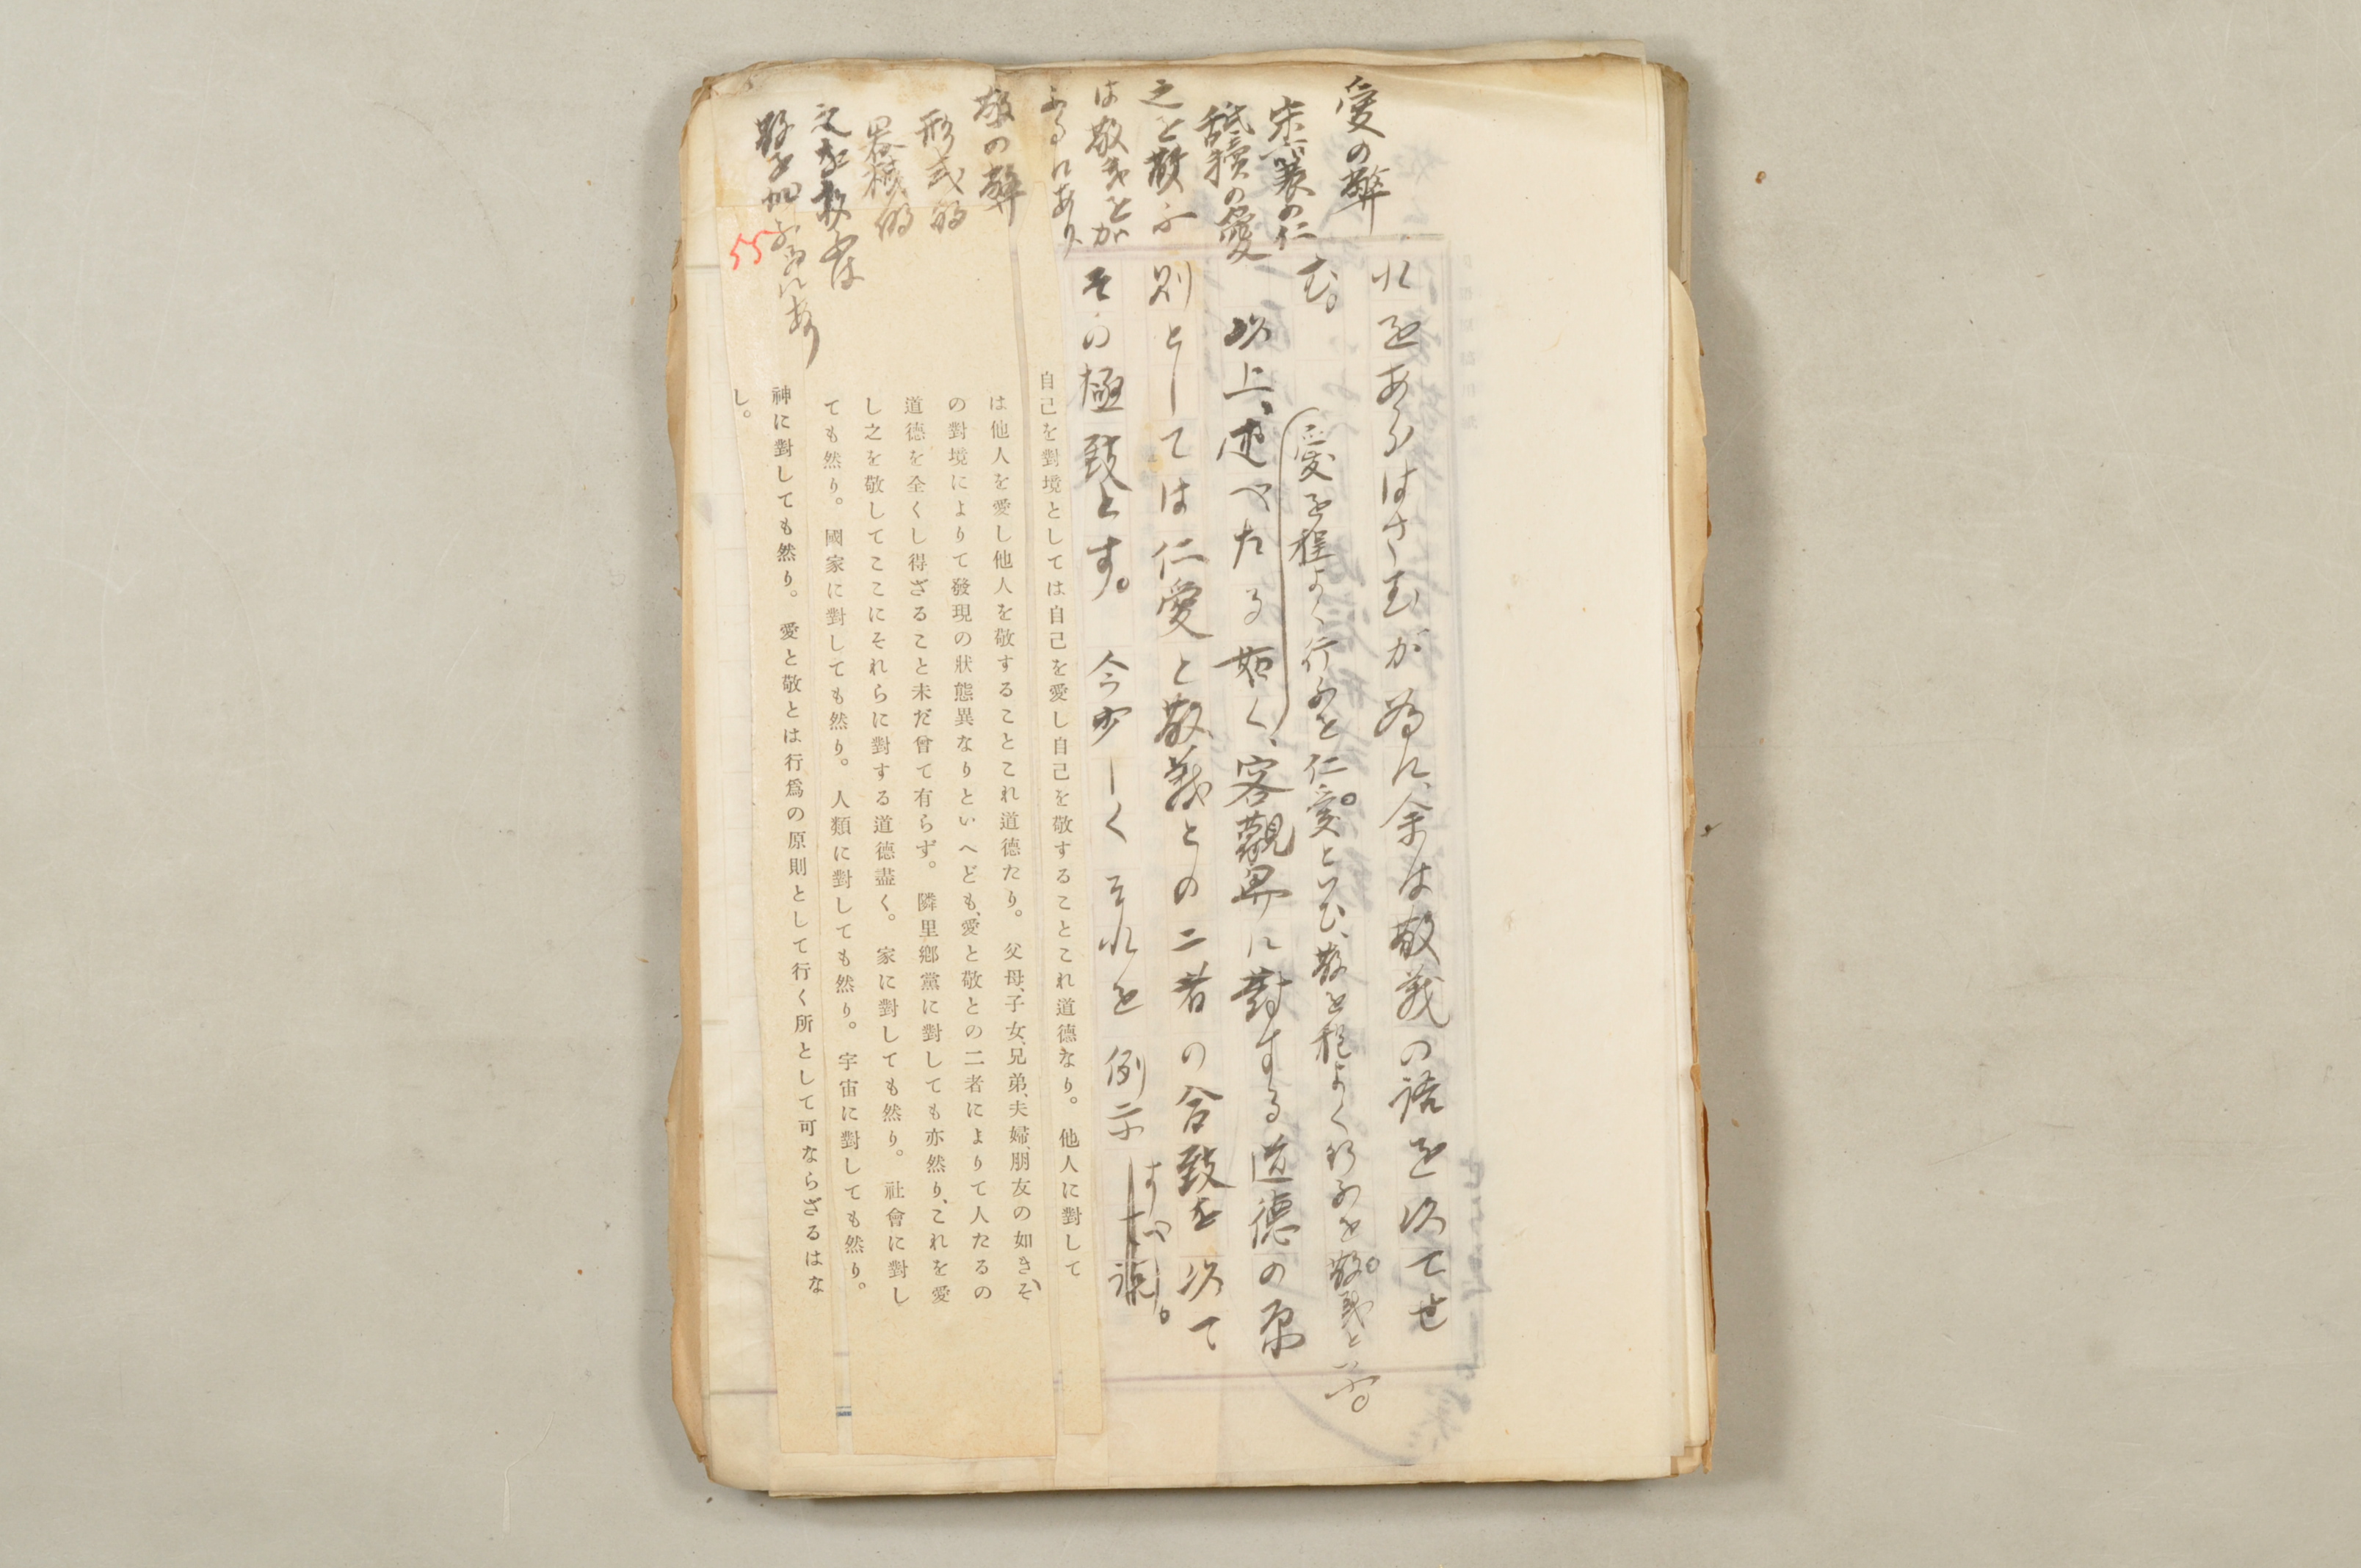 愛の弊
宋襄の仁
舐犢の愛
之を救ふ
は敬義を加
ふるにあり
敬の弊
形式的
器械的
之を救ふは
れをあらはさむが為に、余は敬義の語を以てせ
む。
愛を程よく行ふを仁愛といひ、敬を程よく行ふを敬義といふ。
以上、述べたる如く、客觀界に對する道德の原
則としては仁愛と敬義との二者の合致を以て
その極致とす。今少しくそれを例示すべし。
自己を對境としては自己を愛し自己を敬することこれ道德なり。他人に對して
は他人を愛し他人を敬することこれ道德たり。父母、子女、兄弟、夫婦、朋友の如き、そ
の對境によりて發現の狀態異なりといへども、愛と敬との二者によりて人たるの
道德を全くし得ざること未だ曾て有らず。隣里鄕黨に對しても亦然り、これを愛
し之を敬してここにそれらに對する道德盡く。家に對しても然り。社會に對し
ても然り。國家に對しても然り。人類に對しても然り。宇宙に對しても然り。
神に對しても然り。愛と敬とは行爲の原則として行く所として可ならざるはな
し。
55